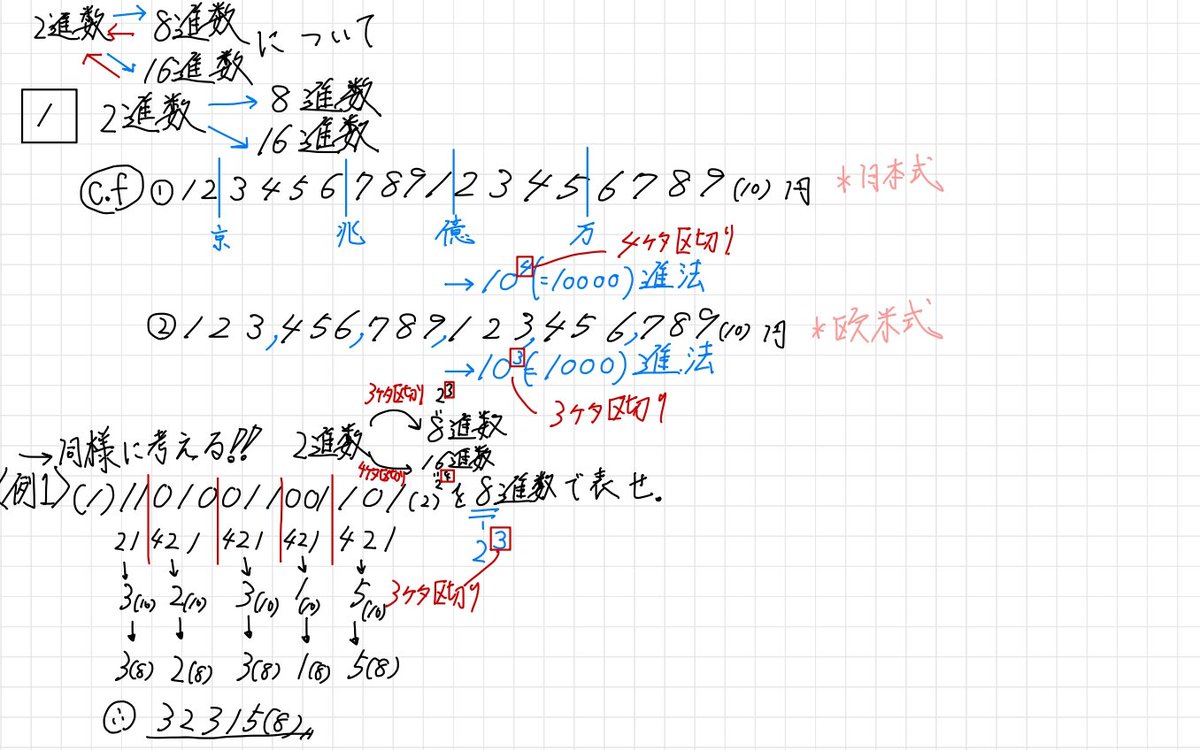 2進数 → 8進数 について
← 
16進数
1 2進数 → 8進数
16進数
c.f ① 12 3456 7891 2345 6789(10)円 *日本式
京 兆 億 万
4ケタ区切り
→10^4(=10000)進法
② 123,456,789,123,456,789(10)円 *欧米式
→10^3(=1000)進法
3ケタ区切り
3ケタ区切り 2^3
→同様に考える!! 2進数 8進数
4ケタ区切り 16進数
2^4
〈例1〉(1) 11|010|011|001|101(2)を8進数で表せ.
21 421 421 421 421 2^3
↓ ↓ ↓ ↓ ↓
3(10) 2(10) 3(10) 1(10) 5(10) 3ケタ区切り
↓ ↓ ↓ ↓ ↓
3(8) 2(8) 3(8) 1(8) 5(8)
∴ 32315(8)